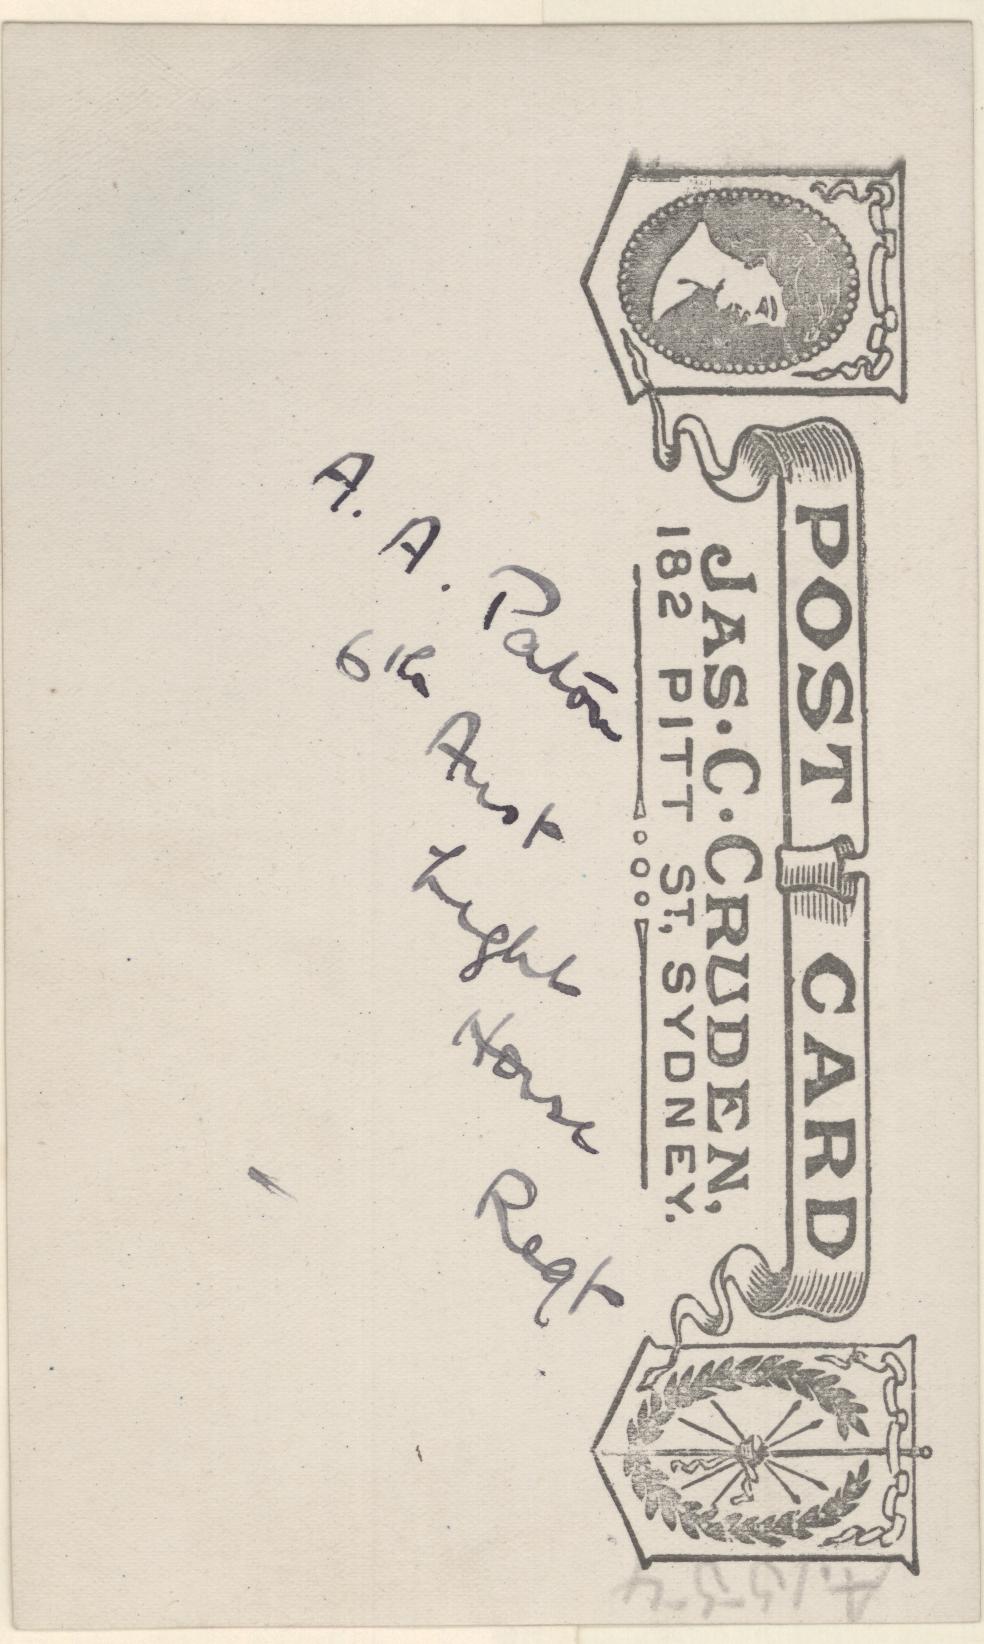 POST CARD
JAS. C. CRUDEN,
182 PITT ST, SYDNEY.
A. A. Paton
6th Aust
Light
Horse
Regt